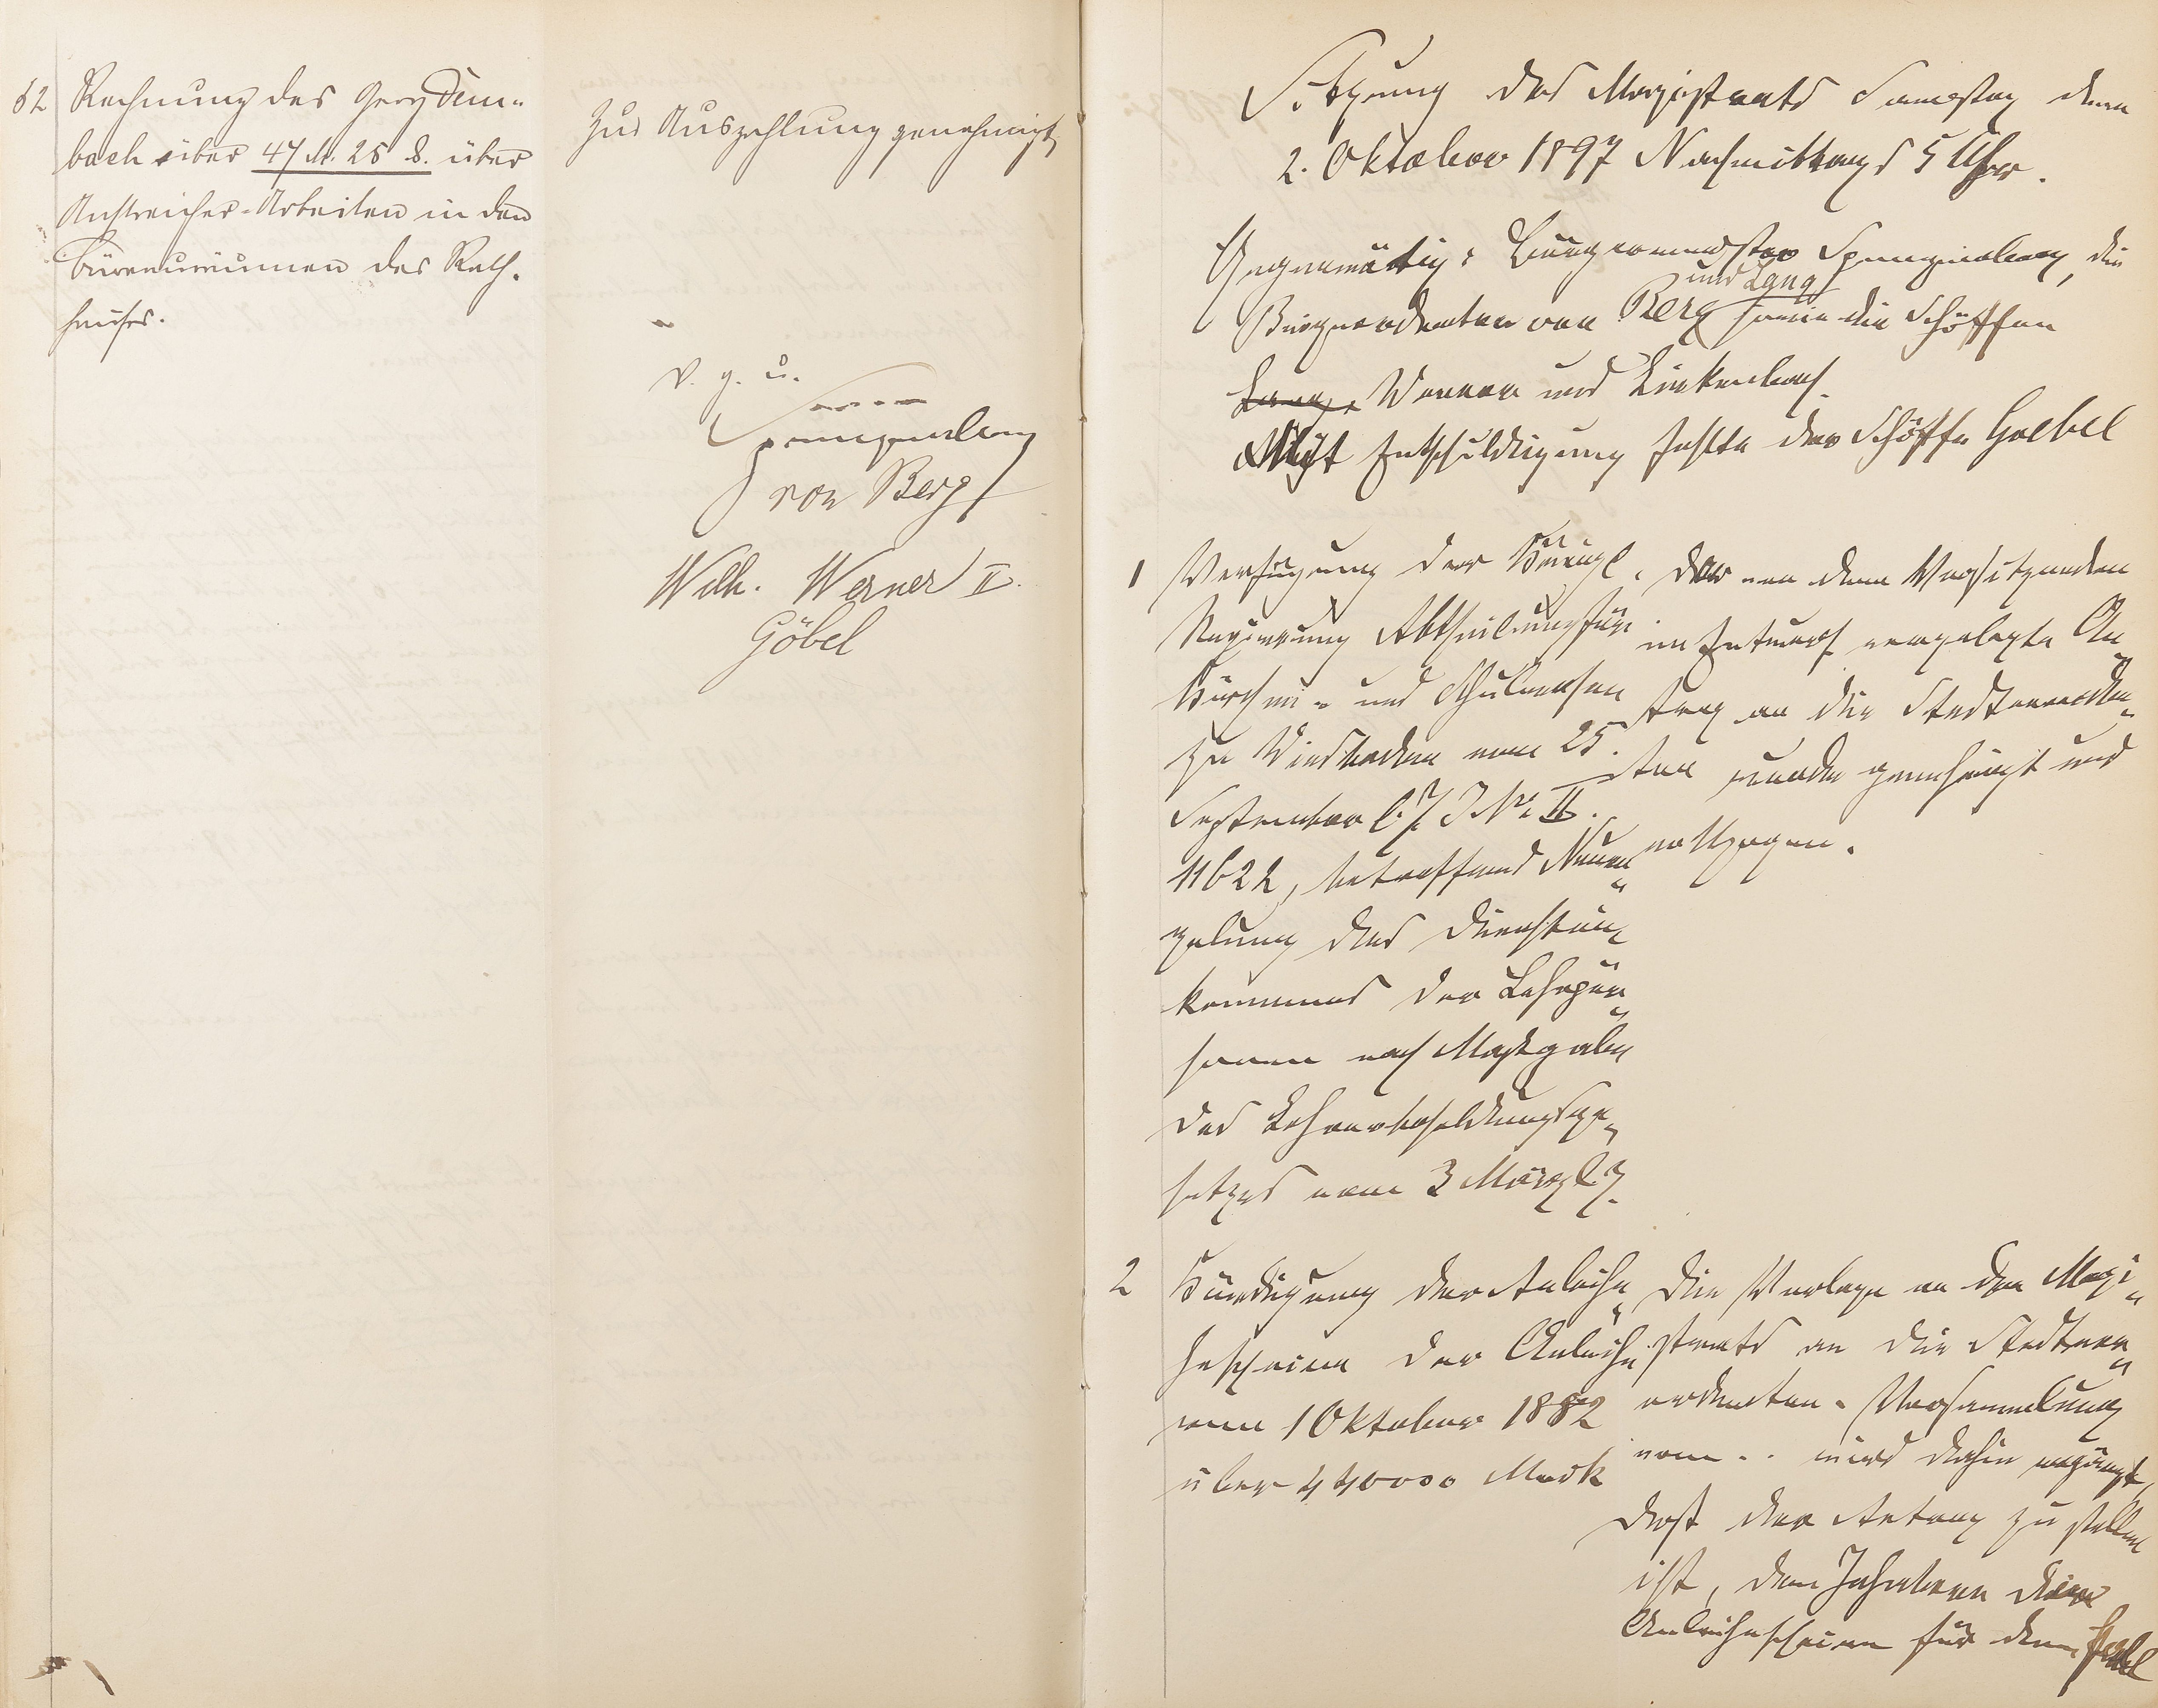 62 Rechnung des Georg Dem-
bach über 47 M. 25 d. über
Anstreicher-Arbeiten in den
Büreauräumen des Rath-
hauses.
Zur Auszahlung genehmigt
v. g. u.
von Berg
Wilh. Werner II.
Göbel
Sitzung des Magistrats Samstag den
2. Oktober 1897 Nachmittags 5 Uhr.
Gegenwärtig: Bürgermeister Spangenberg, die
und Lang
Beigeordneten von Berg sowie die Schöffen
Lang, Werner und Linkenbach.
Mit Entschuldigung fehlte der Schöffe Goebel
1 Verfügung der Königl.
Regierung Abtheilung für
Kirchen- und Schulwesen
zu Wiesbaden vom 25.
September l. J. No II.
11622, betreffend Neure-
gelung des Dienstein-
kommens der Lehrper-
sonen nach Maßgabe
des Lehrerbesoldungsge-
setzes vom 3 März l. J.
Der von dem Vorsitzenden
im Entwurf vorgelegte An-
trag an die Stadtverordne-
ten wurde genehmigt und
vollzogen.
2 Kündigung der Anleihe-
scheine der Anleihe
vom 1 Oktober 1882
über 440000 Mark
Die Vorlage an den Magi-
strats an die Stadtver-
ordneten-Versammlung
vom .. wird dahin ergänzt,
daß der Antrag zu stellen
ist, den Inhabern der
Anleihescheine für den Fall